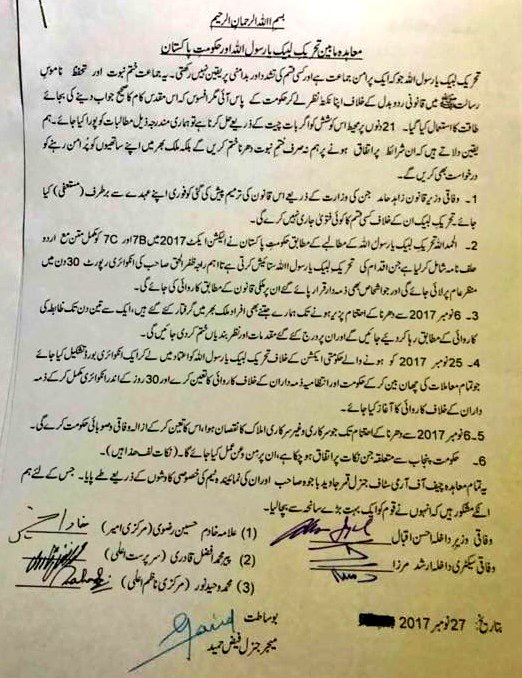 بسم اللہ الرحمان الرحیم
معاہدہ مابین تحریک لبیک یا رسول اللہ اور حکومتِ پاکستان
تحریک لبیک یا رسول اللہ جو کہ ایک پر امن جماعت ہے اور کسی قسم کی تشدد اور بدامنی پر یقین نہیں رکھتی۔ یہ جماعت ختم نبوت اور تحفظ ناموسِ
رسالت ﷺ میں قانونی ردوبدل کے خلاف اپنا نکتہ نظر لے کر حکومت کے پاس آئی مگر افسوس کہ اس مقدس کام کا صحیح جواب دینے کی بجائے
طاقت کا استعمال کیا گیا۔ 21 دنوں پر محیط اس کوشش کو اگر بات چیت کے ذریعے حل کرنا ہے تو ہماری مندرجہ ذیل مطالبات کو پورا کیا جائے۔ ہم
یقین دلاتے ہیں کہ ان شرائط پر اتفاق ہونے پر ہم نہ صرف ختم نبوت دھرنا ختم کریں گے بلکہ ملک بھر میں اپنے ساتھیوں کو پر امن رہنے کو
درخواست بھی کریں گے۔
1۔ وفاقی وزیر قانون زاہد حامد جن کی وزارت کے ذریعے اس قانون کی ترمیم پیش کی گئی کو فوری اپنے عہدے سے برطرف (مستعفی) کیا
جائے۔ تحریک لبیک ان کے خلاف کسی قسم کا کوئی فتویٰ جاری نہیں کرے گی۔
2۔ الحمد اللہ تحریک لبیک یا رسول اللہ کے مطالبے کے مطابق حکومت پاکستان نے الیکشن ایکٹ 2017 میں 7B اور 7C کو مکمل متن مع اردو
حلف نامہ شامل کر لیا ہے جن اقدام کی تحریک لبیک یا رسول اللہ ستائیش کرتی ہے تاہم راجہ ظفر الحق صاحب کی انکوائری رپورٹ 30 دن میں
منظر عام پر لائی جائے گی اور جو اشخاص بھی ذمہ دار قرار پائے گئے ان پر ملکی قانون کے مطابق کاروائی کی جائے گی۔
3۔ 6 نومبر 2017 سے دھرنا کے اختتام پزیر ہونے تک ہمارے جتنے بھی افراد ملک بھر میں گرفتار کئے گئے ہیں، ایک سے تین دن تک ضابطہ کی
کاروائی کے مطابق رہا کر دیئے جائیں گے اور ان پر درج کئے گئے مقدمات اور نظر بندیاں ختم کر دی جائیں گی۔
4۔ 25 نومبر 2017 کو ہونے والے حکومتی ایکشن کے خلاف تحریک لبیک یا رسول اللہ کو اعتماد میں لے کر ایک انکوائری بورڈ تشکیل کیا جائے
جو تمام معاملات کی چھان بین کر کے حکومت اور انتظامیہ ذمہ داران کے خلاف کاروائی کا تعین کرے اور 30 روز کے اندر انکوائری مکمل کر کے ذمہ
داران کے خلاف کاروائی کا آغاز کیا جائے۔
5۔ 6 نومبر 2017 سے دھرنا کے اختتام تک جو سرکاری و غیر سرکاری املاک کا نقصان ہوا، اس کا تعین کر کے ازالہ وفاقی و صوبائی حکومت کرے گی۔
6۔ حکومت پنجاب سے متعلقہ جن نکات پر اتفاق ہو چکا ہے، ان پر من و عن عمل کیا جائے گا۔ (نکات لف ھذا ہیں)۔
یہ تمام معاہدہ چیف آف آرمی سٹاف جنرل قمر جاوید باجوہ صاحب اور ان کی نمائیندہ ٹیم کی خصوصی کاوشوں کے ذریعے طے پایا۔ جس کے لئے ہم
انکے مشکور ہیں کہ انہوں نے قوم کو ایک بہت بڑے سانحہ سے بچا لیا۔
وفاقی وزیر داخلہ احسن اقبال
وفاقی سیکٹری داخلہ ارشد مرزا
(1) علامہ خادم حسین رضوی (مرکزی امیر)
(2) پیر محمد افضل قادری (سرپرست اعلی)
(3) محمد وحید نور (مرکزی ناظم اعلی)
بتاریخ: 27 نومبر 2017
بوساطت
میجر جنرل فیض حمید